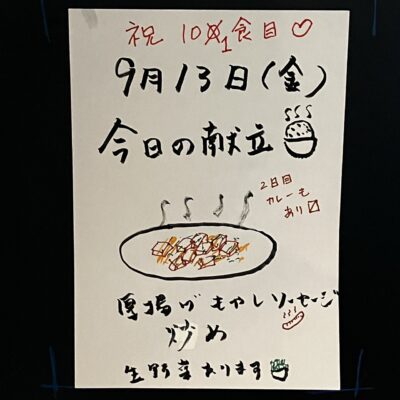 祝 101食目♡
9月13日(金)
今日の献立
2日目
カレーも
あり
厚揚げもやしソーセージ
炒め
生野菜あります